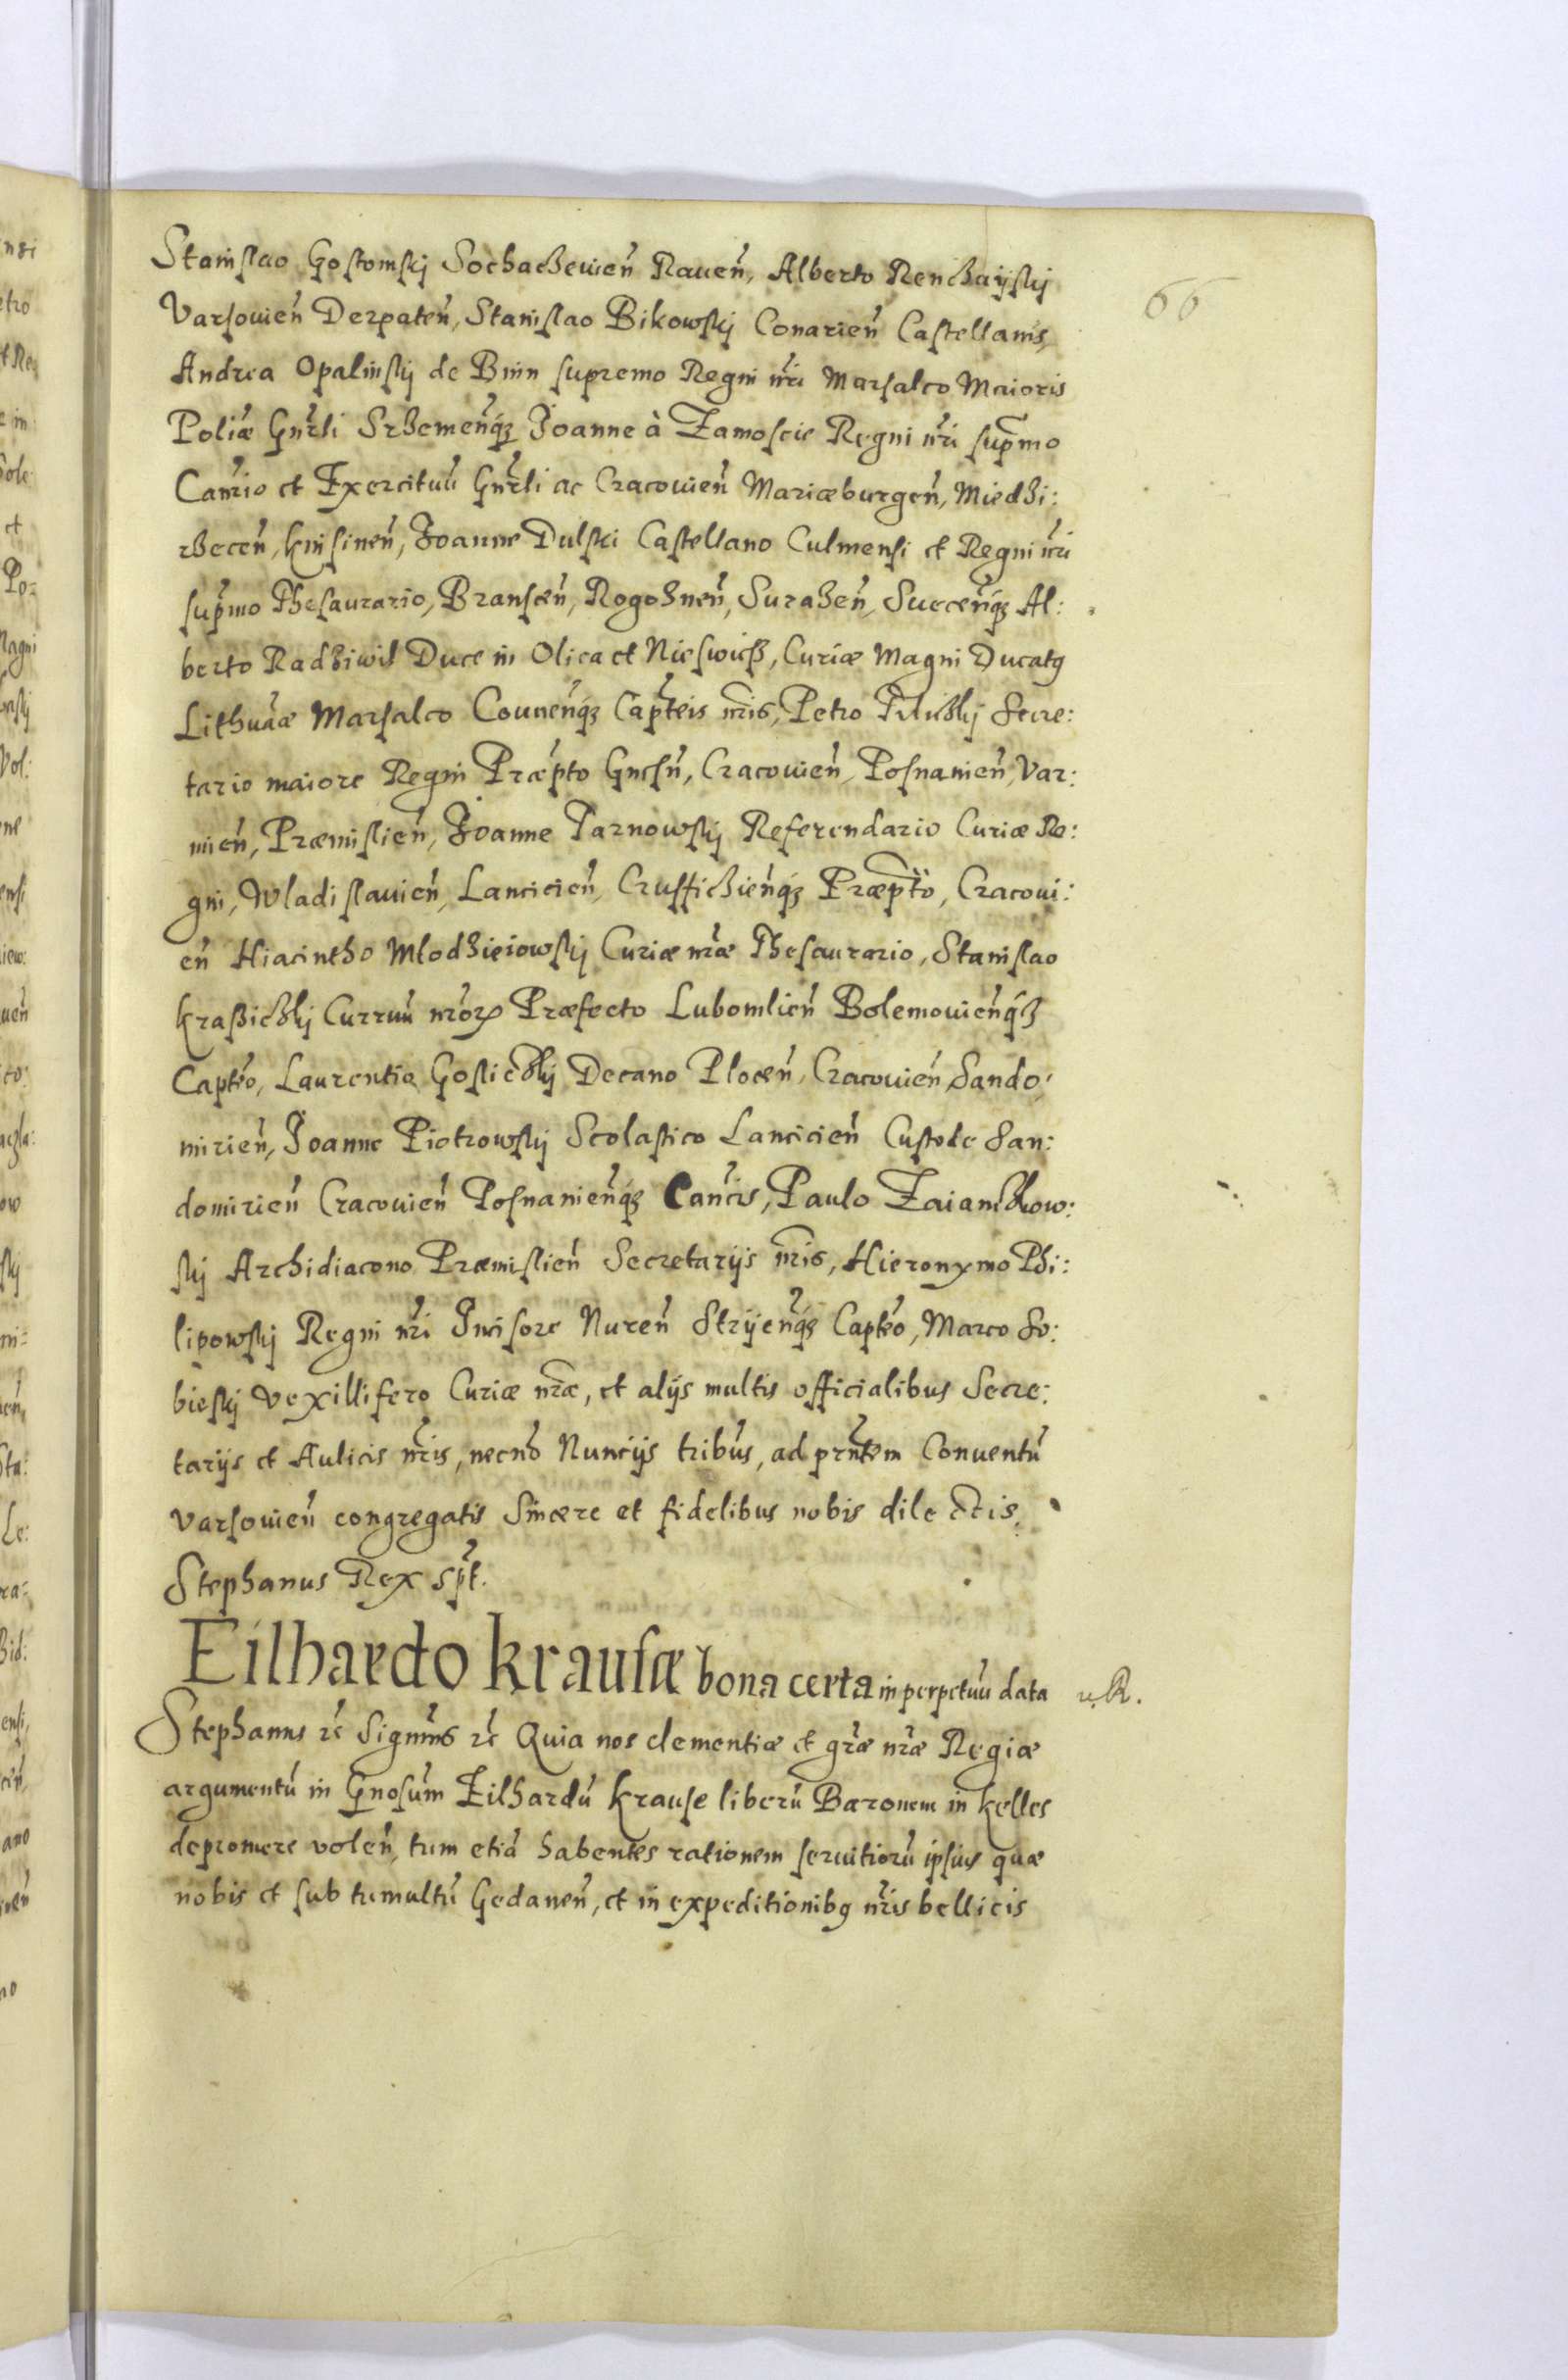 66
Stanislao Gostomskj Sochaczevień Raueń, Alberto Renczaijskj
Varsouień Derpateń, Stanislao Bikowskj Conarień Castellanis,
Andrea Opalinskj de Bnin supremo Regni nri Marsalco Maioris
Poliæ Gnrli Srzemeńq3 Joanne à Zamoscie Regni nri supmo
Canrio et Exercituū Gnrli ac Cracouień Mariæburgeń, Miedzi:
rzeceń, Knisineń, Joanne Dulski Castellano Culmensi et Regni nri
supmo Thesaurario, Branscń, Rogozneń, Surazeń, Sueceńq3 Al:
berto Radziwil Duce in Olica et Nieswicz, Curiæ Magni Ducatq
Lithuāæ Marsalco Couneńq3 Capteis nris, Petro Tiliczkj Secre:
tario maiore Regni Præpto Gnesń, Cracouień, Posnanień, Var:
mień, Præmislień, Joanne Tarnowskj Referendario Curiæ Re:
gni, Wladislauień, Lancicień, Crusficzieńq3 Præpto, Cracoui:
eń Hiacintho Mlodzieiowskj Curiæ nræ Thesaurario, Stanislao
Krasiczkj Curruū nrorꝝ Præfecto Lubomlień Bolemouieńq3
Capteo, Laurentio Gosliczkj Decano Ploceń, Cracouień, Sando:
mirień, Joanne Piotrowskj Scolastico Lancicień Custode San:
domirień Cracouień Posnanieńq3 Cancis, Paulo Zaianczkow:
skj Archidiacono Præmislień Secretarijs nris, Hieronymo Phi:
lipowskj Regni nri Inisore Nureń Strijeńq3 Capteo, Marco So:
bieskj Vexillifero Curiæ nræ, et alijs multis officialibus Secre:
tarijs et Aulicis nris, necnō Nuncijs tribūs, ad prntem Conuentū
Varsouień congregatis Sincere et fidelibus nobis dilectis.
Stephanus Rex spt.
Eilhardo Krausæ bona certa in perpetuū data
Stephanus rc Signmus rc Quia nos clementiæ et græ nræ Regiæ
argumentū in Gnosum Eilhardū Krause liberū Baronem in Kelles
depromere voleń, tum etiā habentes rationem seruitiorū ipsius quæ
nobis et sub tumultū Gedaneń, et in expeditionibq nris bellicis